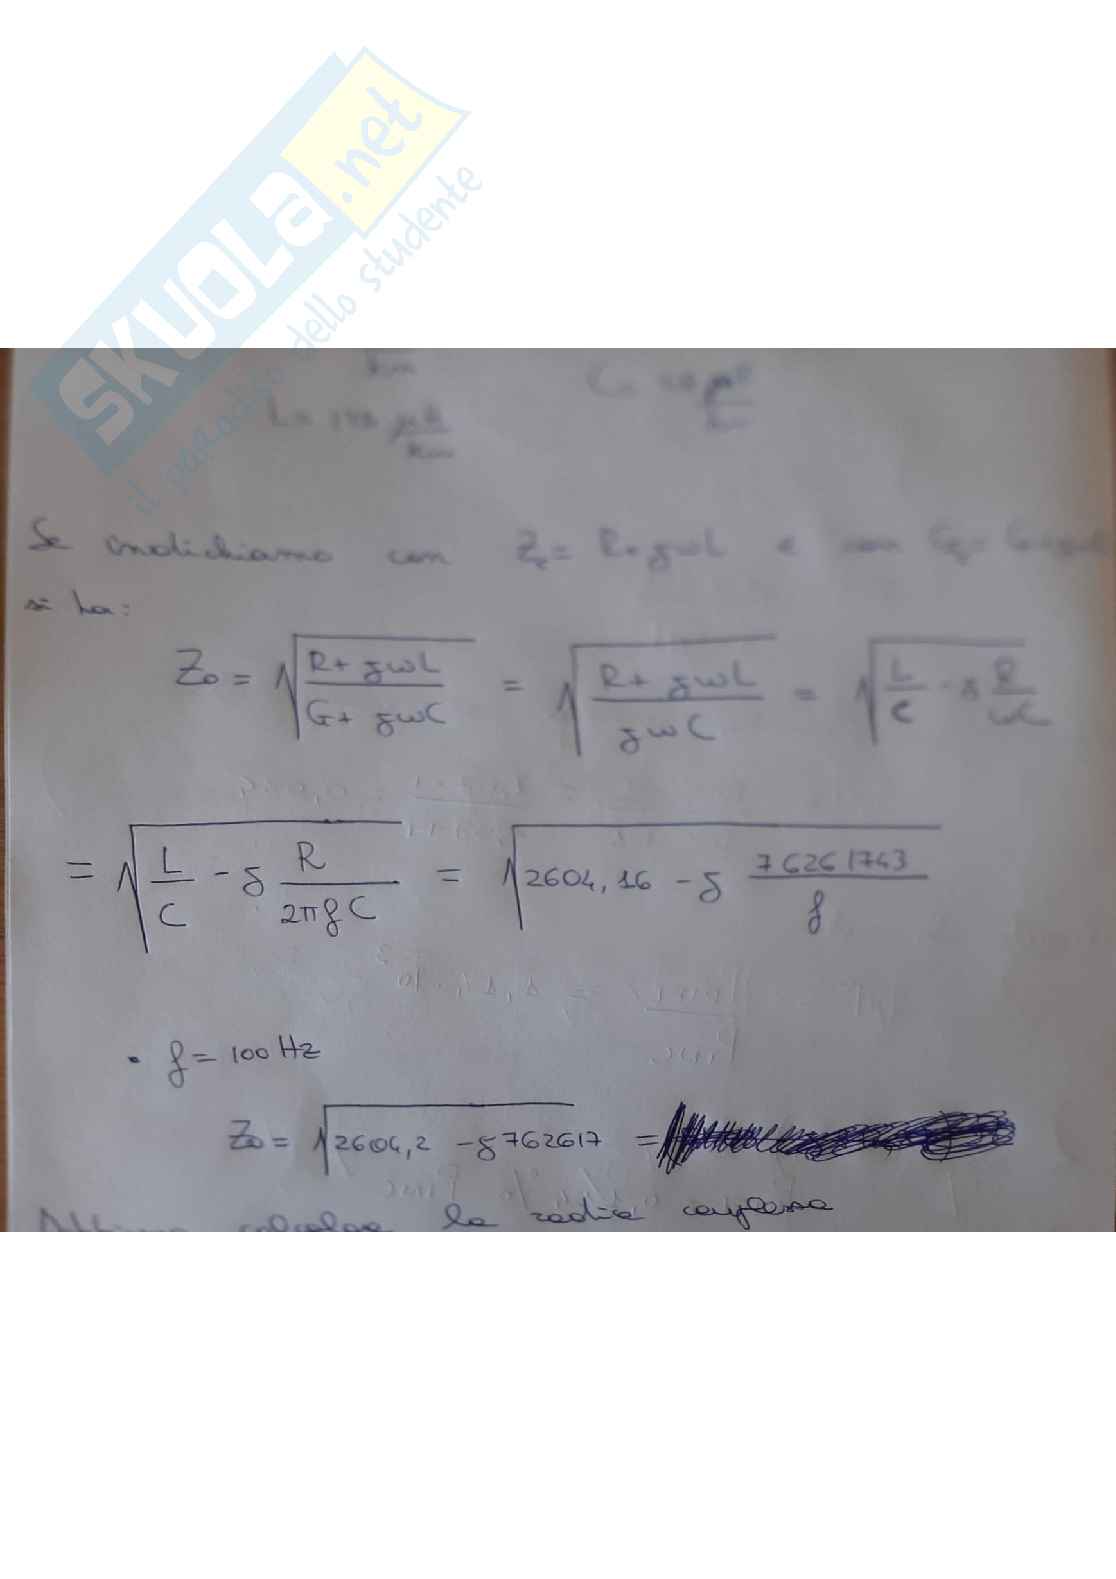 SKUOLA.net
il paradiso dello studente
km
C =
L =
km
Se indichiamo con Z = R + jωL e con
si ha:
Z₀ = √((R + jωL)/(G + jωC)) = √((R + jωL)/(jωC)) = √(L/C - j R/(ωC))
= √(L/C - j R/(2πfC)) = √(2604,16 - j 76261743/f)
• f = 100 Hz
Z₀ = √(2604,2 - j762617) =
calcolare la radice complessa